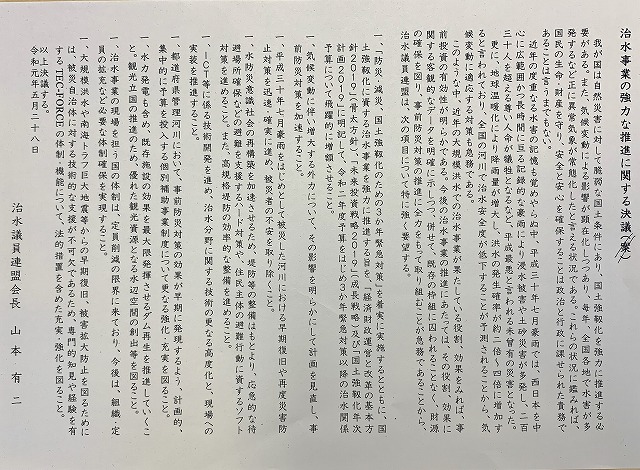 治水事業の強力な推進に関する決議(案)
我が国は自然災害に対して脆弱な国土条件にあり、国土強靱化を強力に推進する必
要がある。また、気候変動による影響が顕在化しつつあり、毎年、全国各地で水害が多
発するなど正に異常気象が常態化したと言える状況である。これらの状況に鑑みれば、
国民の生命・財産を守り、安全と安心を確保することは政治と行政に課せられた責務で
あることは言をまたない。
近年の度重なる水害の記憶も覚めやらぬ中、平成三十年七月豪雨では、西日本を中
心に広範囲かつ長時間に亘る記録的な豪雨により浸水被害や土砂災害が多発し、二百
三十人を超える尊い人命が犠牲となるなど、平成最悪と言われる未曾有の災害となった。
更に、地球温暖化により降雨量が増大し、洪水の発生確率が約二倍~四倍に増加す
ると言われており、全国の河川で治水安全度が低下することが予測されることから、気
候変動に適応する対策も急務である。
このような中、近年の大規模洪水での治水事業が果たしている役割、効果をみれば、事
前投資の有効性が明らかである。今後の治水事業の推進にあたっては、その役割、効果に
関する客観的なデータを明確に示しつつ、併せて、既存の枠組に囚われることなく、財源
の確保を図り、事前防災対策の推進に全力をもって取り組むことが急務であることから、
治水議員連盟は、次の項目について特に強く要望する。
一、「防災、減災、国土強靱化のための3か年緊急対策」を着実に実施するとともに、国
土強靱化に資する治水事業を強力に推進する旨を、「経済財政運営と改革の基本方
針2019」(骨太方針)、「未来投資戦略2019」(成長戦略)及び「国土強靱化年次
計画2019」に明記して、令和二年度予算をはじめ3か年緊急対策以降の治水関係
予算について飛躍的に増額させること。
一、気候変動に伴い増大する外力について、その影響を明らかにして計画を見直し、事
前防災対策を加速すること。
一、平成三十年七月豪雨をはじめとして被災した河川における早期復旧や再度災害防
止対策を迅速・確実に進め、被災者の不安を取り除くこと。
一、水防災意識社会の再構築を加速させるため、堤防等の整備はもとより、応急的な待
避場所確保などの避難を支援するハード対策や、住民主体の避難行動に資するソフト
対策を進めること。また、高規格堤防の効率的な整備を進めること。
一、ICT等に係る技術開発を進め、治水分野に関する技術の更なる高度化と、現場への
実装を推進すること。
一、都道府県管理河川において、事前防災対策の効果が早期に発現するよう、計画的、
集中的に予算を投入する個別補助事業制度について更なる強化、充実を図ること。
一、水力発電も含め、既存施設の効果を最大限発揮させるダム再生を推進していくこ
と。観光立国の推進のため、優れた観光資源となる水辺空間の創出等を図ること。
一、治水事業の現場を担う国の体制は、定員削減の限界に来ており、今後は、組織・定
員の拡充など必要な体制確保を実現すること。
一、大規模洪水や南海トラフ巨大地震等からの早期復旧、被害拡大防止を図るために
は、被災自治体に対する技術的な支援が不可欠であるため、専門的知見や経験を有
するTEC-FORCEの体制・機能について、法的措置を含めた充実・強化を図ること。
以上決議する。
令和元年五月二十八日
治水議員連盟会長 山本有二